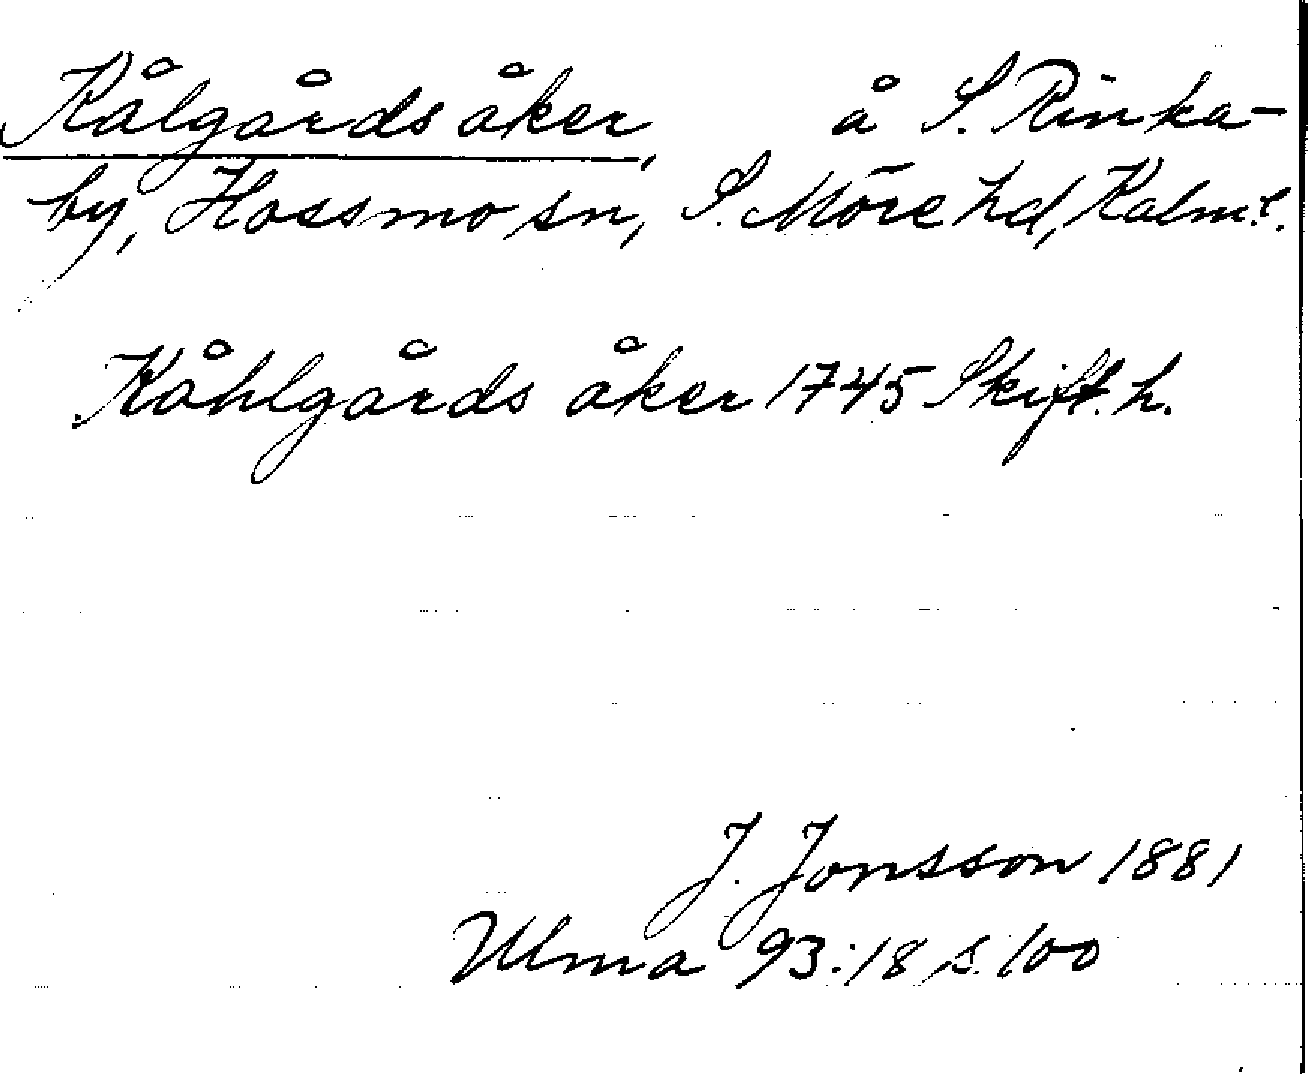 Kålgårds åker, å S. Rinka-
by, Hossmo sn, S. Möre hd, Kalm. l.
Kåhlgårds åker 1745 Skift. h.
J. Jonsson 1881
Ulma 93:18 s. 100